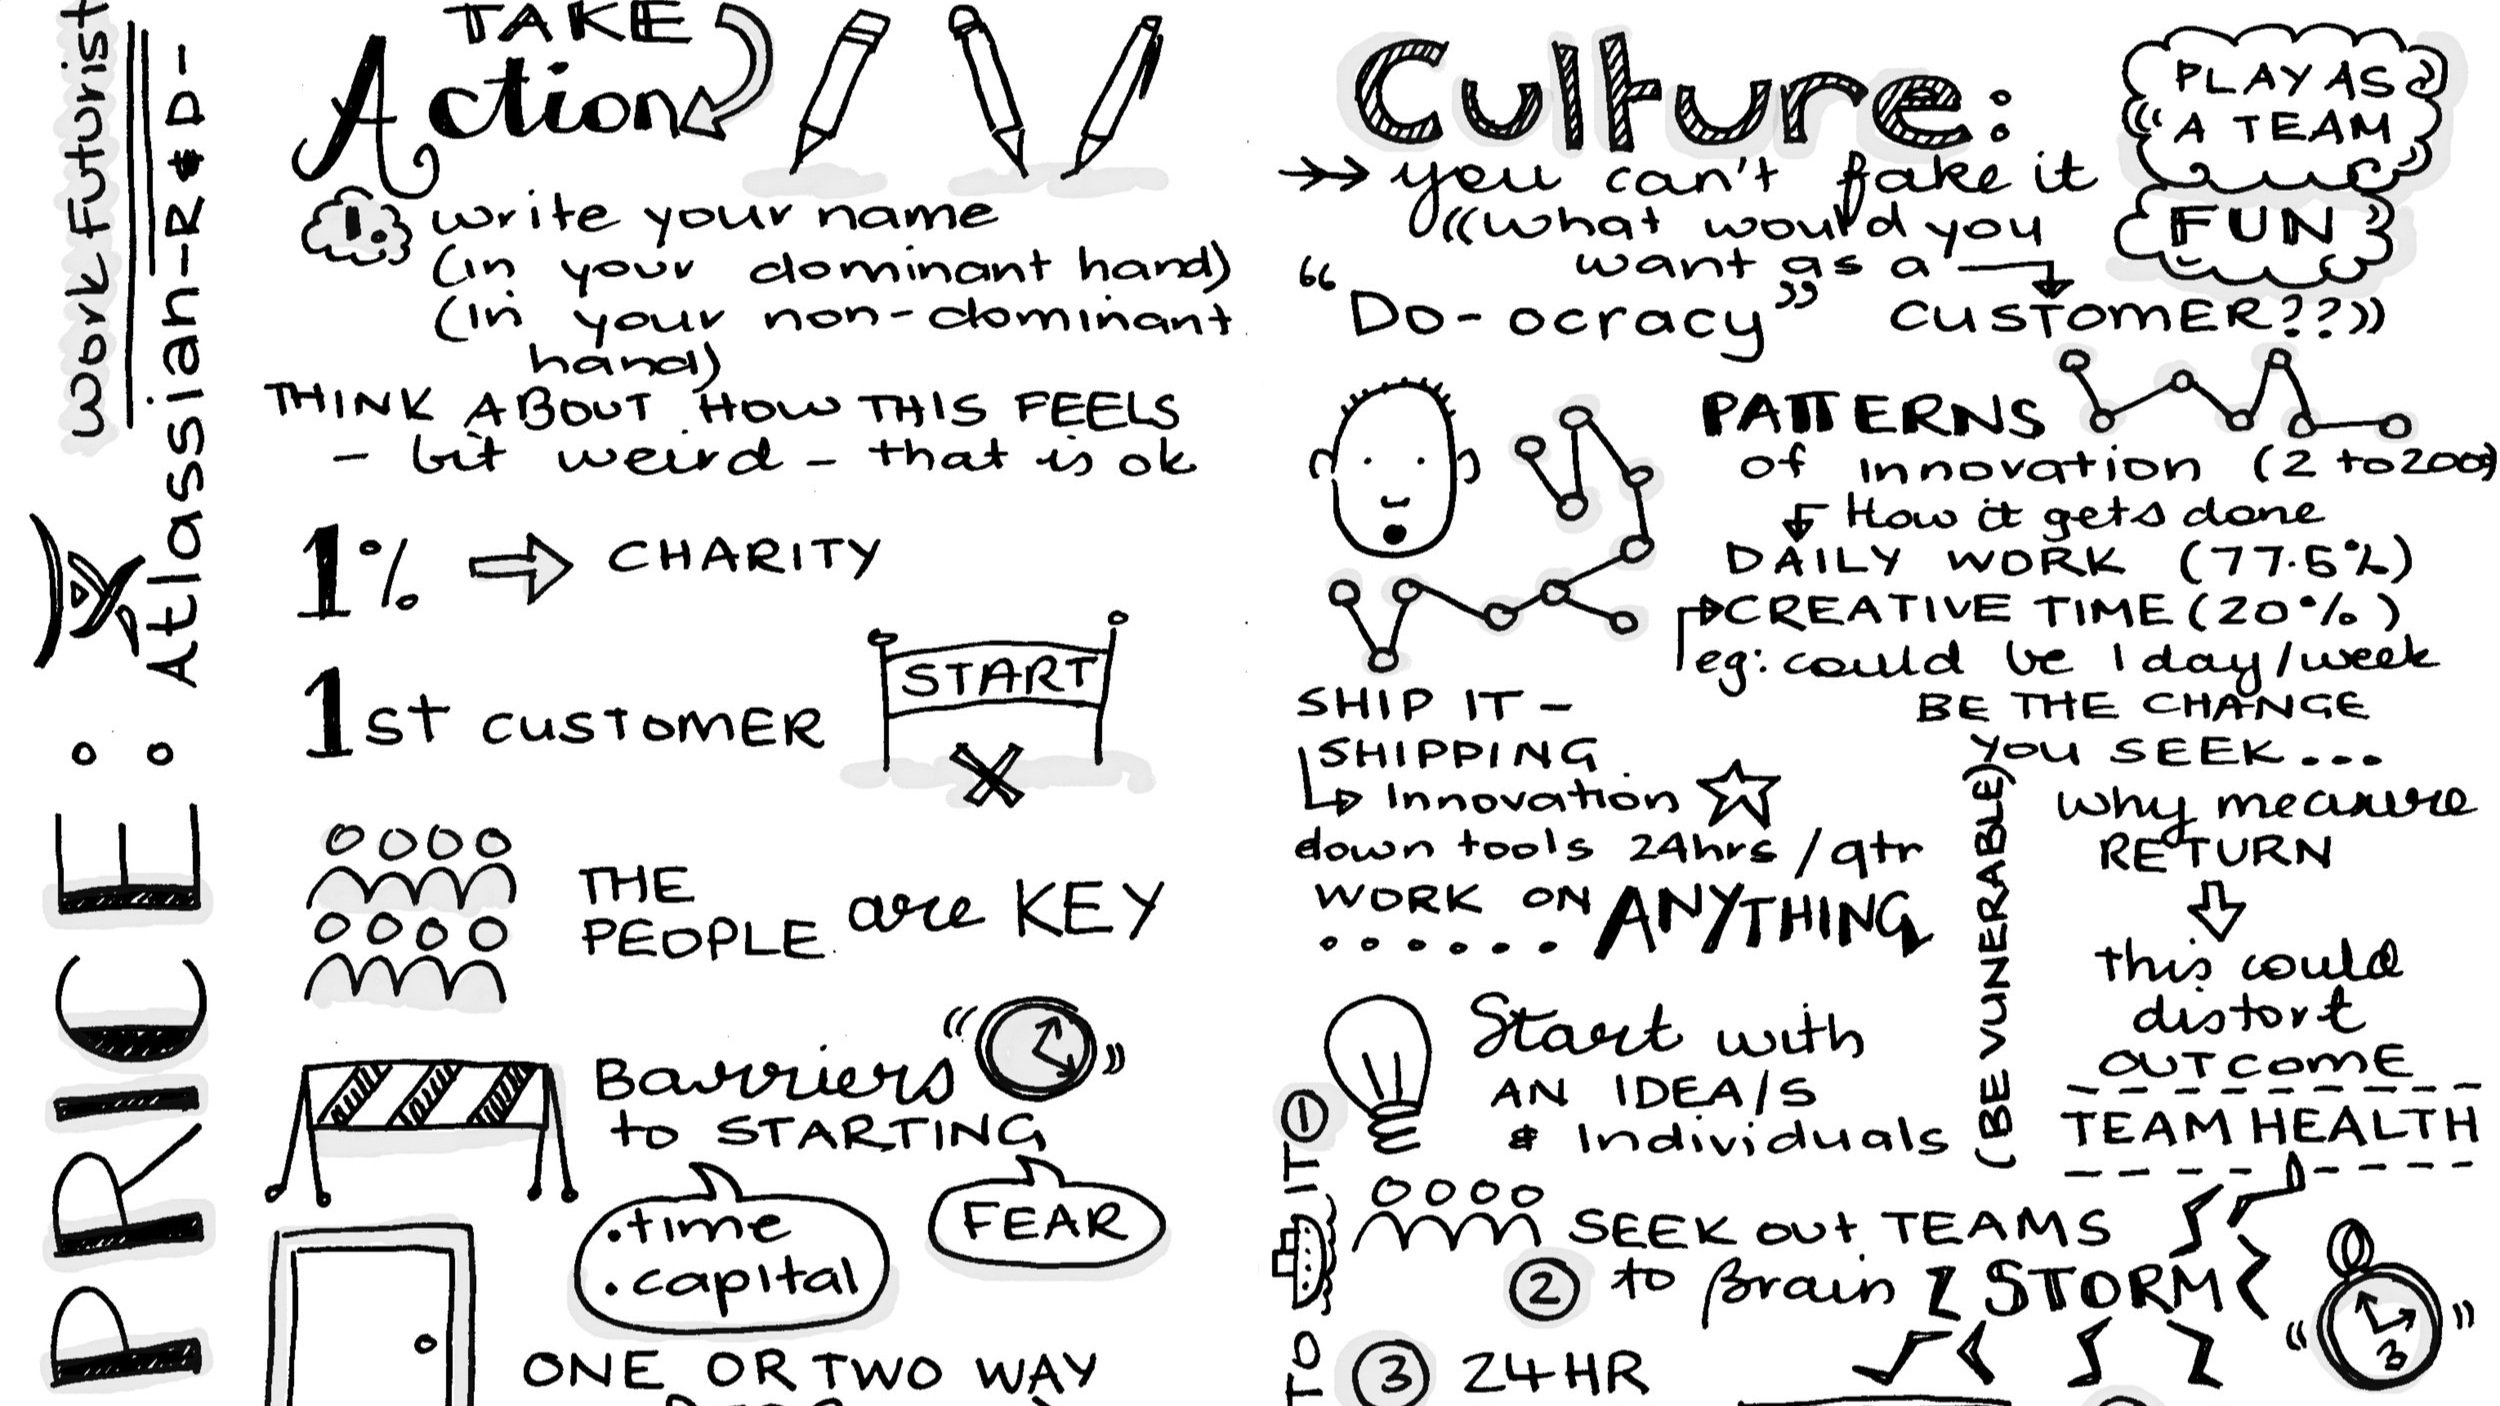 work Futurist
Atlassian - R & D -
PRICE:
TAKE
Action
1. write your name
(in your dominant hand)
(in your non-dominant
hand)
THINK ABOUT HOW THIS FEELS
- bit weird - that is ok
1% CHARITY
1st CUSTOMER
START
THE
PEOPLE are KEY
Barriers
to STARTING
•time
•capital
FEAR
ONE OR TWO WAY
Culture:
PLAY AS
A TEAM
FUN
you can't fake it
((what would you
want as a
CUSTOMER??))
"Do-ocracy"
PATTERNS
of innovation (2 to 200)
How it gets done
DAILY WORK (77.5%)
CREATIVE TIME (20%)
eg: could be 1 day/week
SHIP IT -
SHIPPING
Innovation
down tools 24hrs/qtr
WORK ON ANYTHING
......
BE THE CHANGE
YOU SEEK...
(BE VUNERABLE)
why measure
RETURN
this could
distort
OUTCOME
TEAM HEALTH
TO IT
1
Start with
AN IDEA/S
& Individuals
SEEK OUT TEAMS
2 to Brain STORM
3 24HR
3